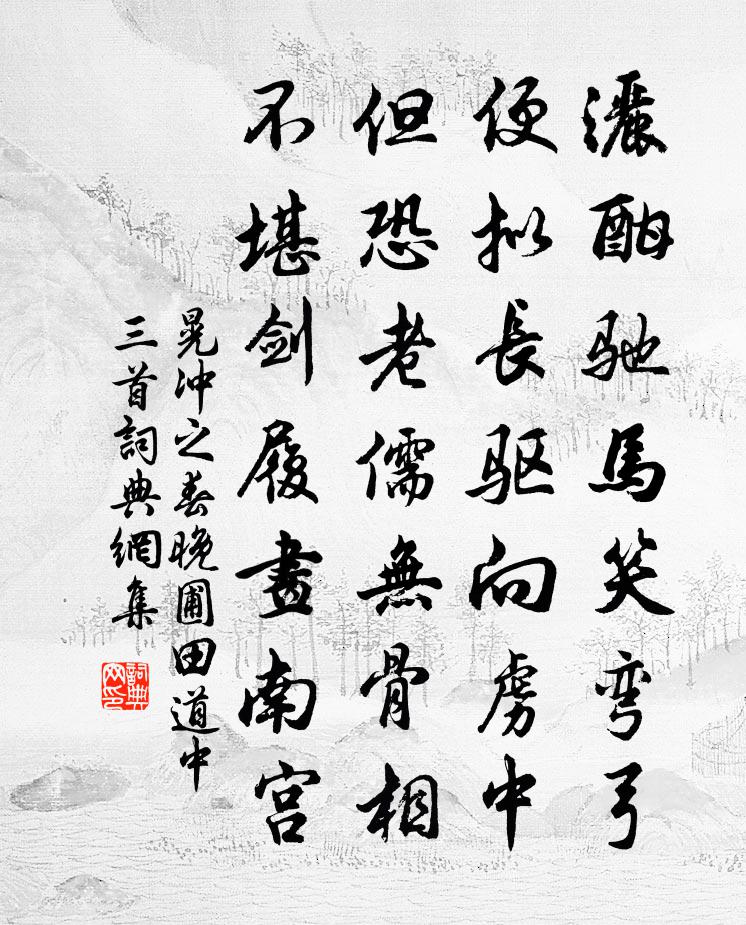 酣驰馬笑弯弓
便拟長驱向虏中
但恐老儒無骨相
不堪剑履畫南宫
晁冲之春晚圃田道中
三首詞典網集
詞典网印